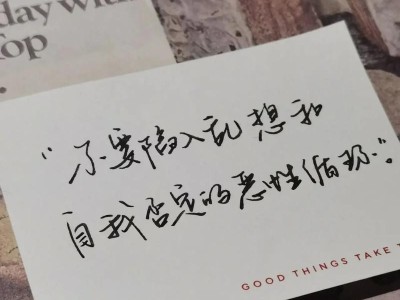 day with
Top
“不要陷入乱想和
自我否定的恶性循环”。
GOOD THINGS TAKE T